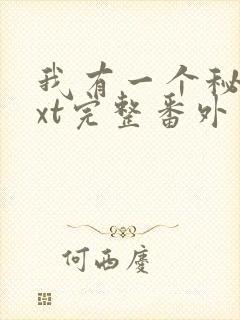 我有一个秘
xt完整番外
何西廖